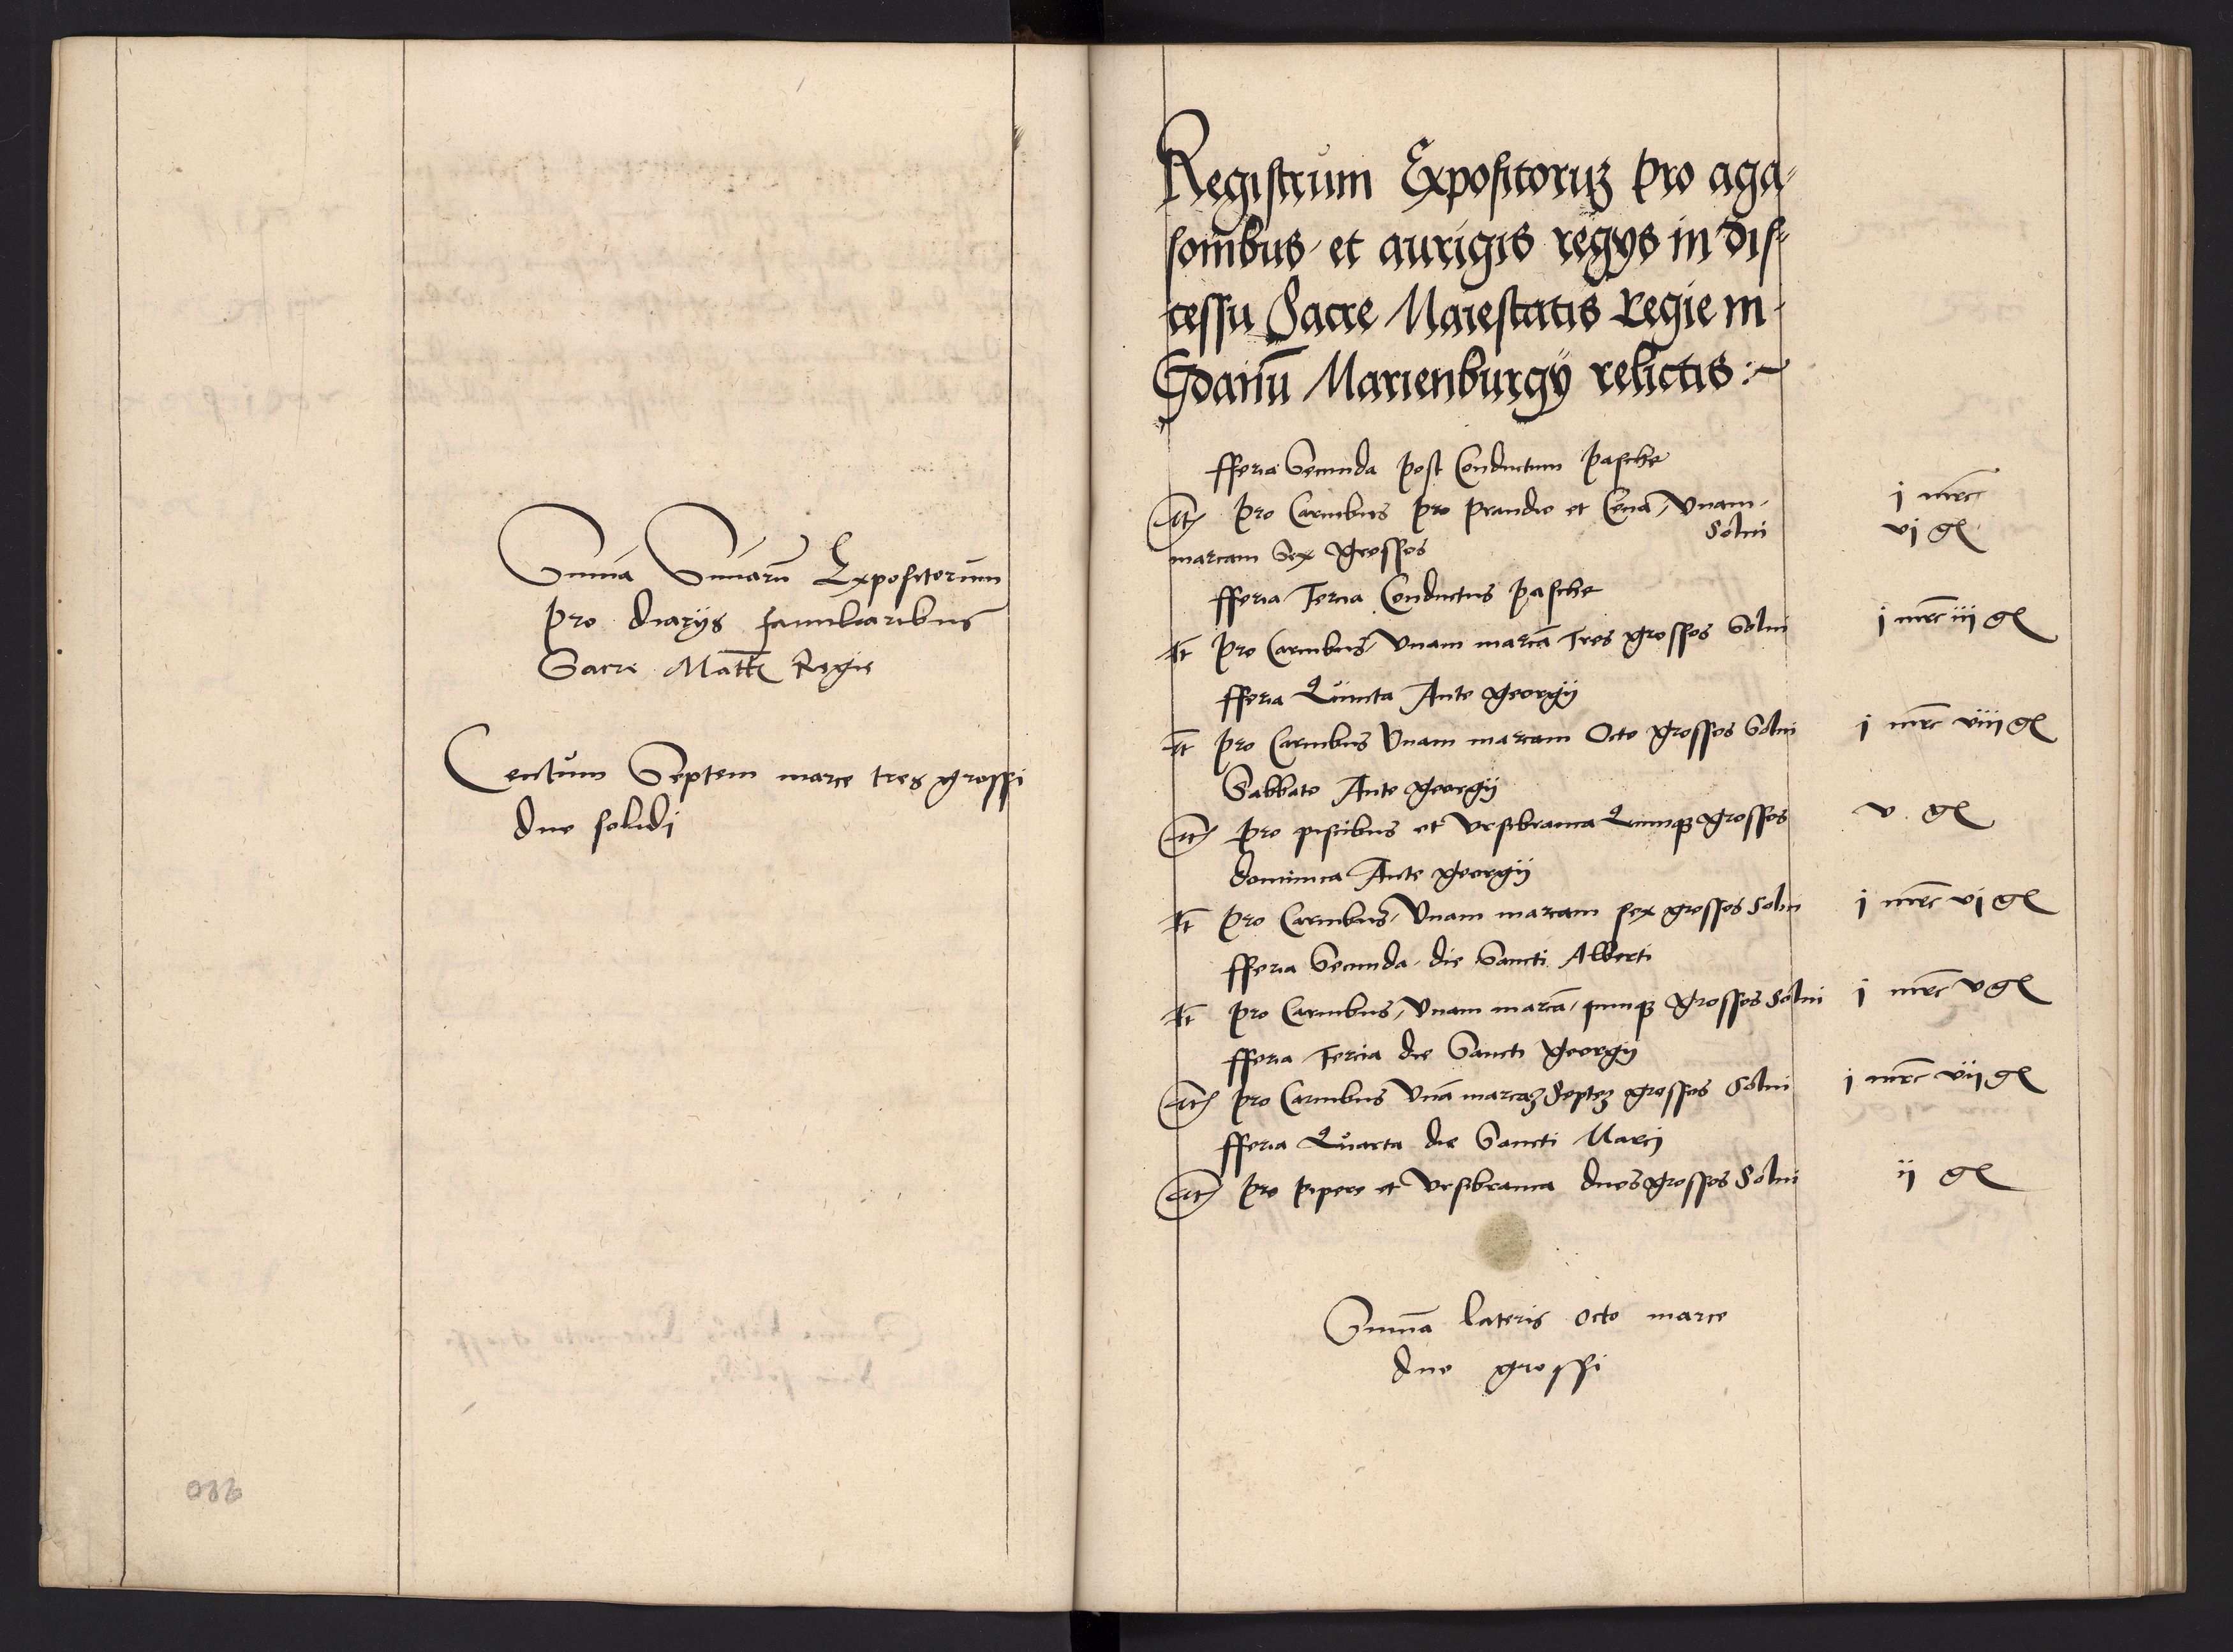 Suma Sumarū Expositorum
pro diarijs familiaribus
Sacre Mattis Regie
Centum Septem marce tres grossi
duo solidi
Registrum Expositorūz pro aga-
sonibus et aurigis regijs in dis-
cessu Sacre Maiestatis Regie in
Gdanū Marienburgij relictis :~
fferia Secunda post Conductum pasche
It pro Carnibus pro prandio et Cena, Vnam
marcam Sex grossos Solui
j mrc
vj gr
fferia Tercia Conductus pasche
It pro Carnibus, Vnam marcā Tres grossos Solui j mrc iij gr
fferia Quinta Ante georgij
It pro Carnibus Vnam marcam Octo grossos Solui j mrc viij gr
Sabbato Ante georgij
It pro piscibus et Vrsibranca Quinqz grossos v gr
dominica Ante georgij
It pro Carnibus, Vnam marcam sex grossos Solui j mrc vj gr
fferia Secunda die Sancti Alberti
It pro Carnibus, Vnam marcā, quinqz grossos Solui j mrc v gr
fferia Tercia die Sancti georgij
It pro Carnibus Vnā marcaz Septez grossos Solui j mrc vij gr
fferia Quarta die Sancti Marcj
It pro pipere et Vrsibranca duos grossos Solui ij gr
Suma lateris octo marce
duo grossi